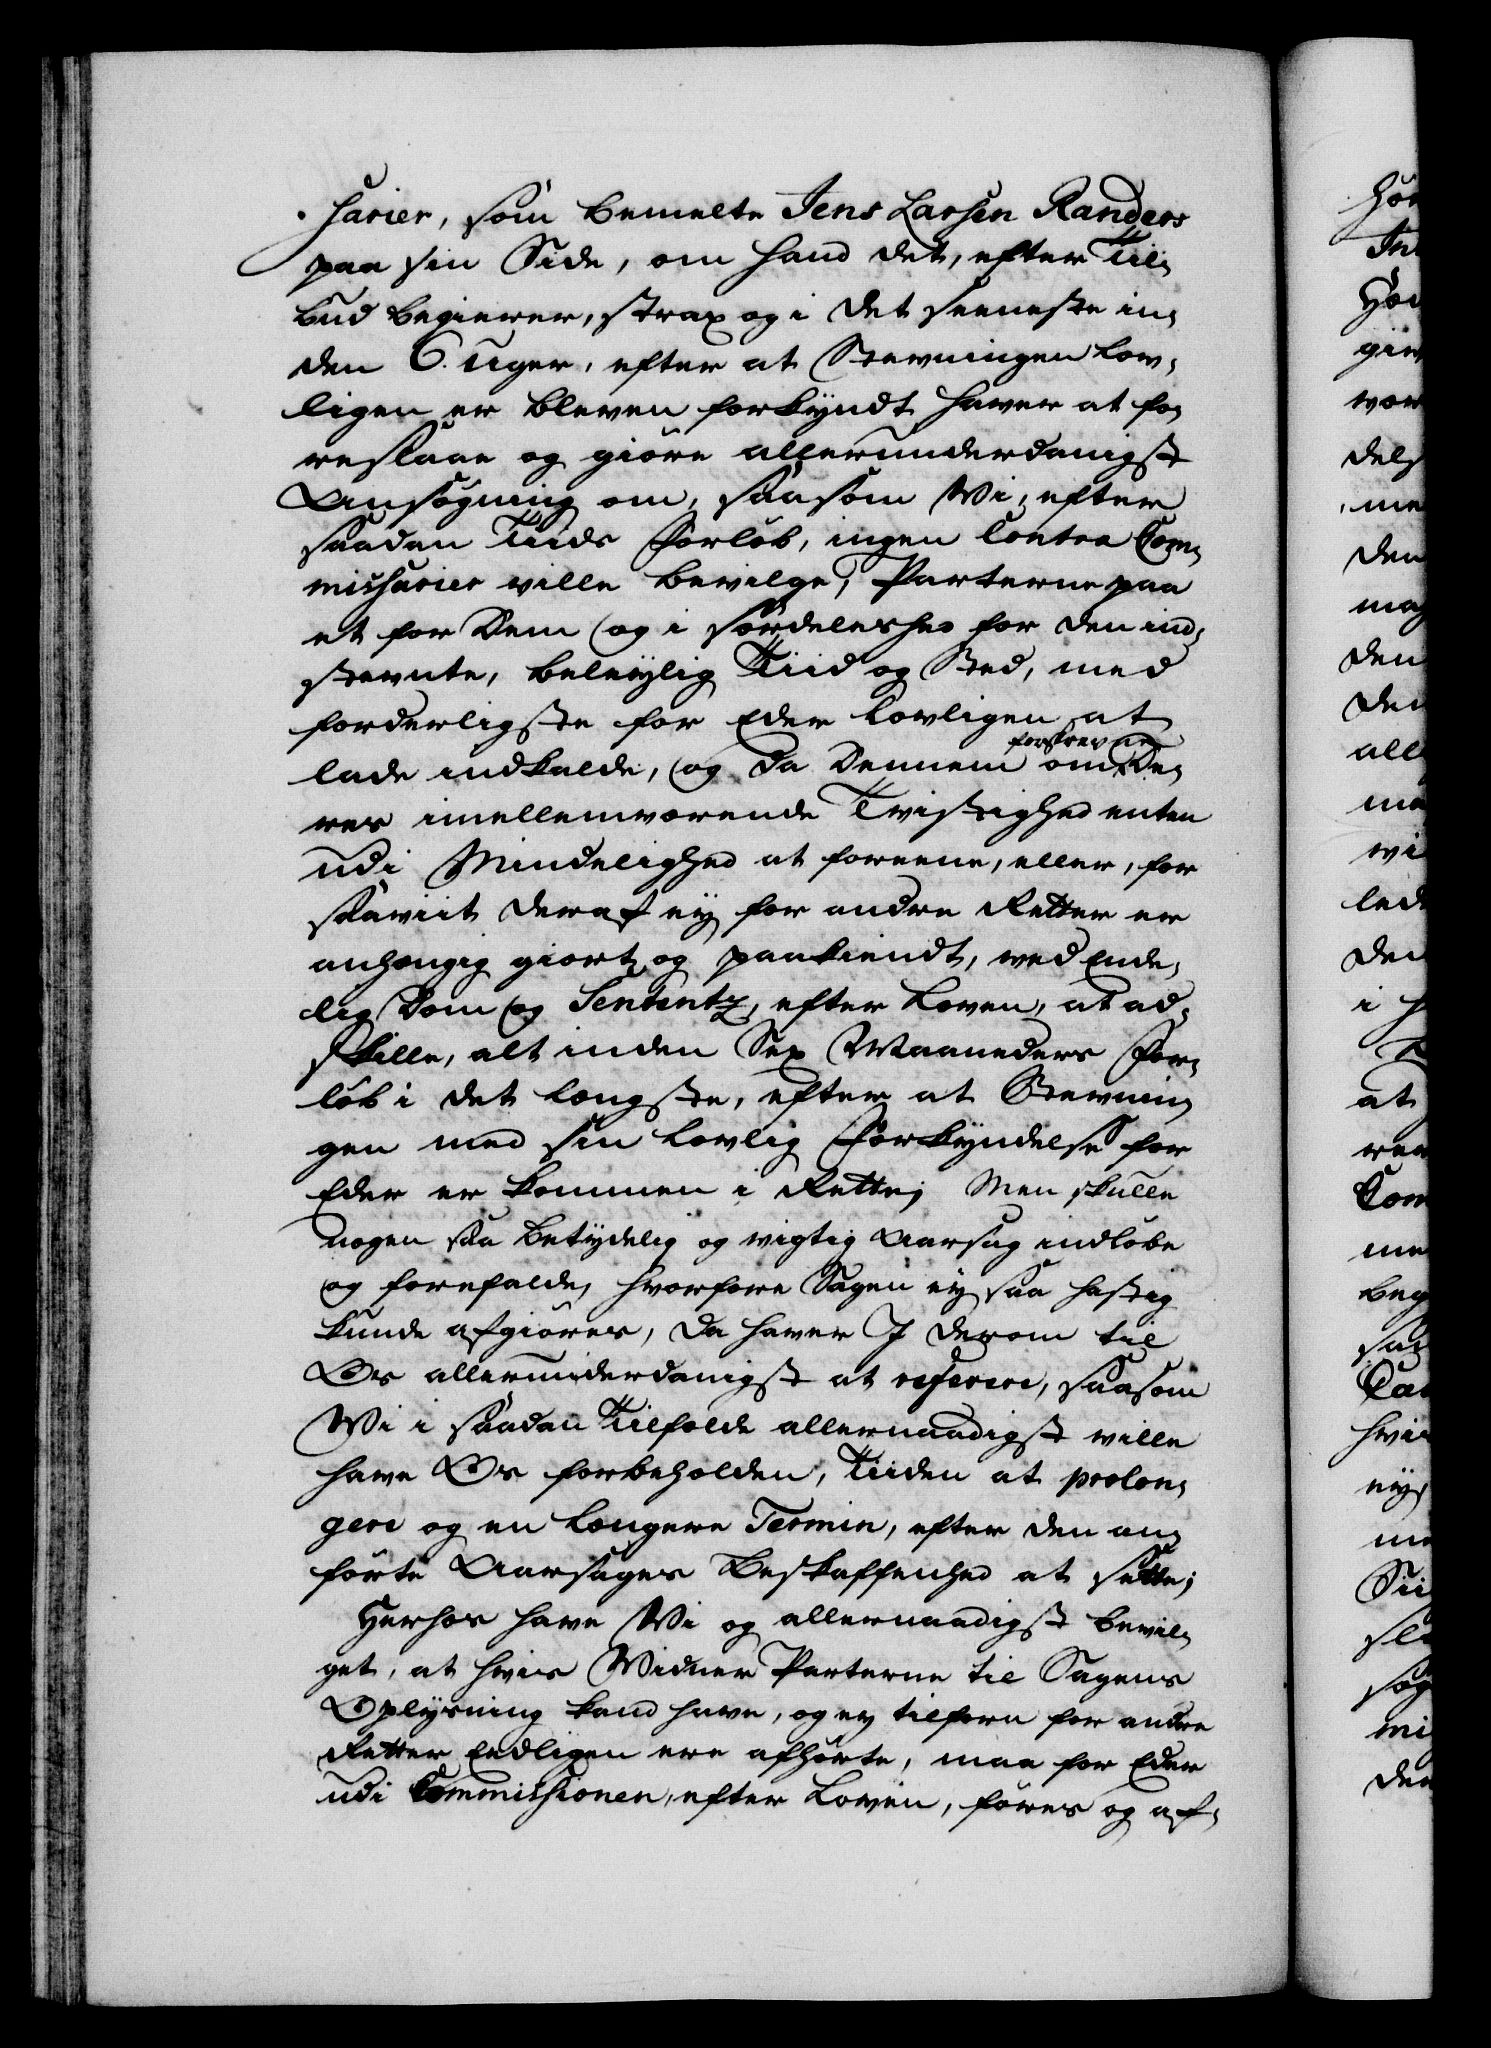 sarier, som bemelte Jens Larsen Randers
paa sin Side, om hand det, efter Til-
bud begierer, strax og i det seeneste in-
den 6. uger, efter at Stevningen lov-
ligen er bleven forkyndt haver at fo-
reslaae og giøre allerunderdanigst
Ansøgning om, saasom Wi, efter
saadan Tiids Forløb, ingen Contra Com-
missarier ville bevilge, Parterne paa
et for Dem og i særdeleshed for den ind-
stevnte, beleylig Tiid og Sted, med
forderligste for Eder lovligen at
lade indkalde, og da Dennem om forskrevne De-
res imellemværende Tvistighed enten
udi Mindelighed at foreene, eller, for
saaviit deraf ey for andre Retter er
anhængig giort og paakiendt, ved Ende-
lig Dom og Sententz, efter Loven, at ad-
skille, alt inden Sex Maaneders For-
løb i det længste, efter at Stevnin-
gen med sin lovlig Forkyndelse for
Eder er kommen i Rette; Men skulle
nogen saa betydelig og vigtig Aarsag indløbe
og forefalde, hvorfore Sagen ey saa hastig
kunde afgiøres, da haver I derom til
Os allerunderdanigst at referere, saasom
Wi i saadan Tilfælde allernaadigst ville
have Os forbeholden, Tiiden at prolon-
gere og en længere Termin, efter den an-
førte Aarsages Beskaffenhed at sætte;
Herhos have Wi og allernaadigst bevil-
get, at hvis Widner Parterne til Sagens
Oplysning kand have, og ey tilforn for andre
Retter Eedligen ere afhørte, maa for Eder
udi Commissionen, efter Loven, føres og af-